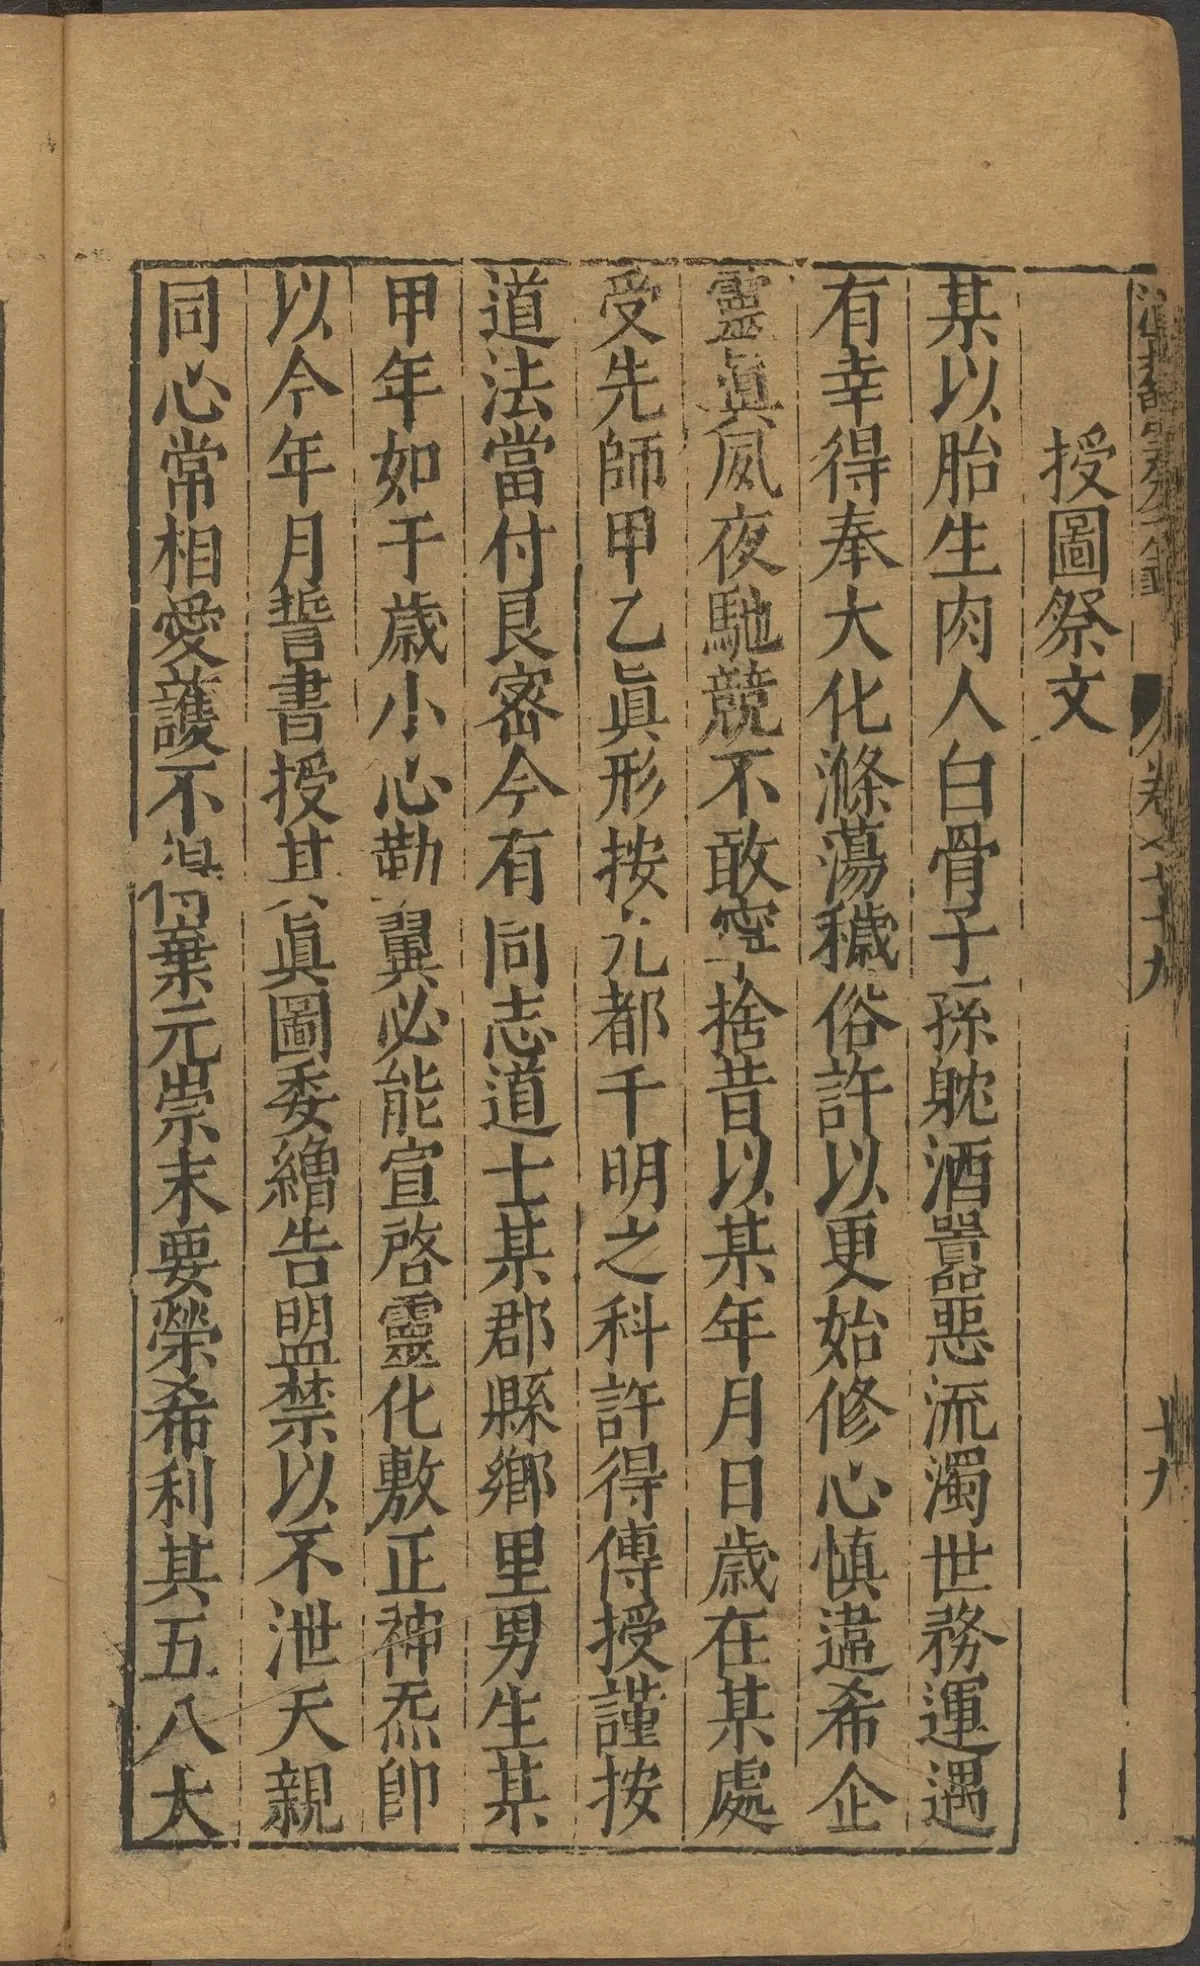 卷七十九
十九
授圖祭文
某以胎生肉人白骨子孫躭酒嚚惡流濁世務運遇
有幸得奉大化滌蕩穢俗許以更始修心愼違希企
靈眞夙夜馳競不敢空捨昔以某年月日歲在某處
受先師甲乙眞形按元都千明之科許得傳授謹按
道法當付良密今有同志道士某郡縣鄉里男生某
甲年如干歲小心勤翼必能宣啓靈化敷正神炁卽
以今年月誓書授其眞圖委繒告盟禁以不泄天親
同心常相愛護不得背棄元崇末要榮希利其五八大